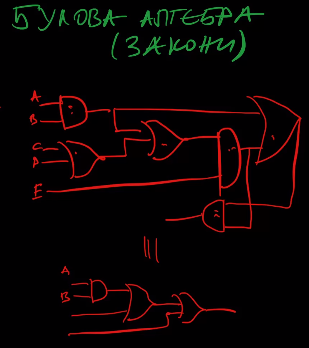 БУЛОВА АЛГЕБРА
(ЗАКОНИ)
A
B
C
D
E
A
B